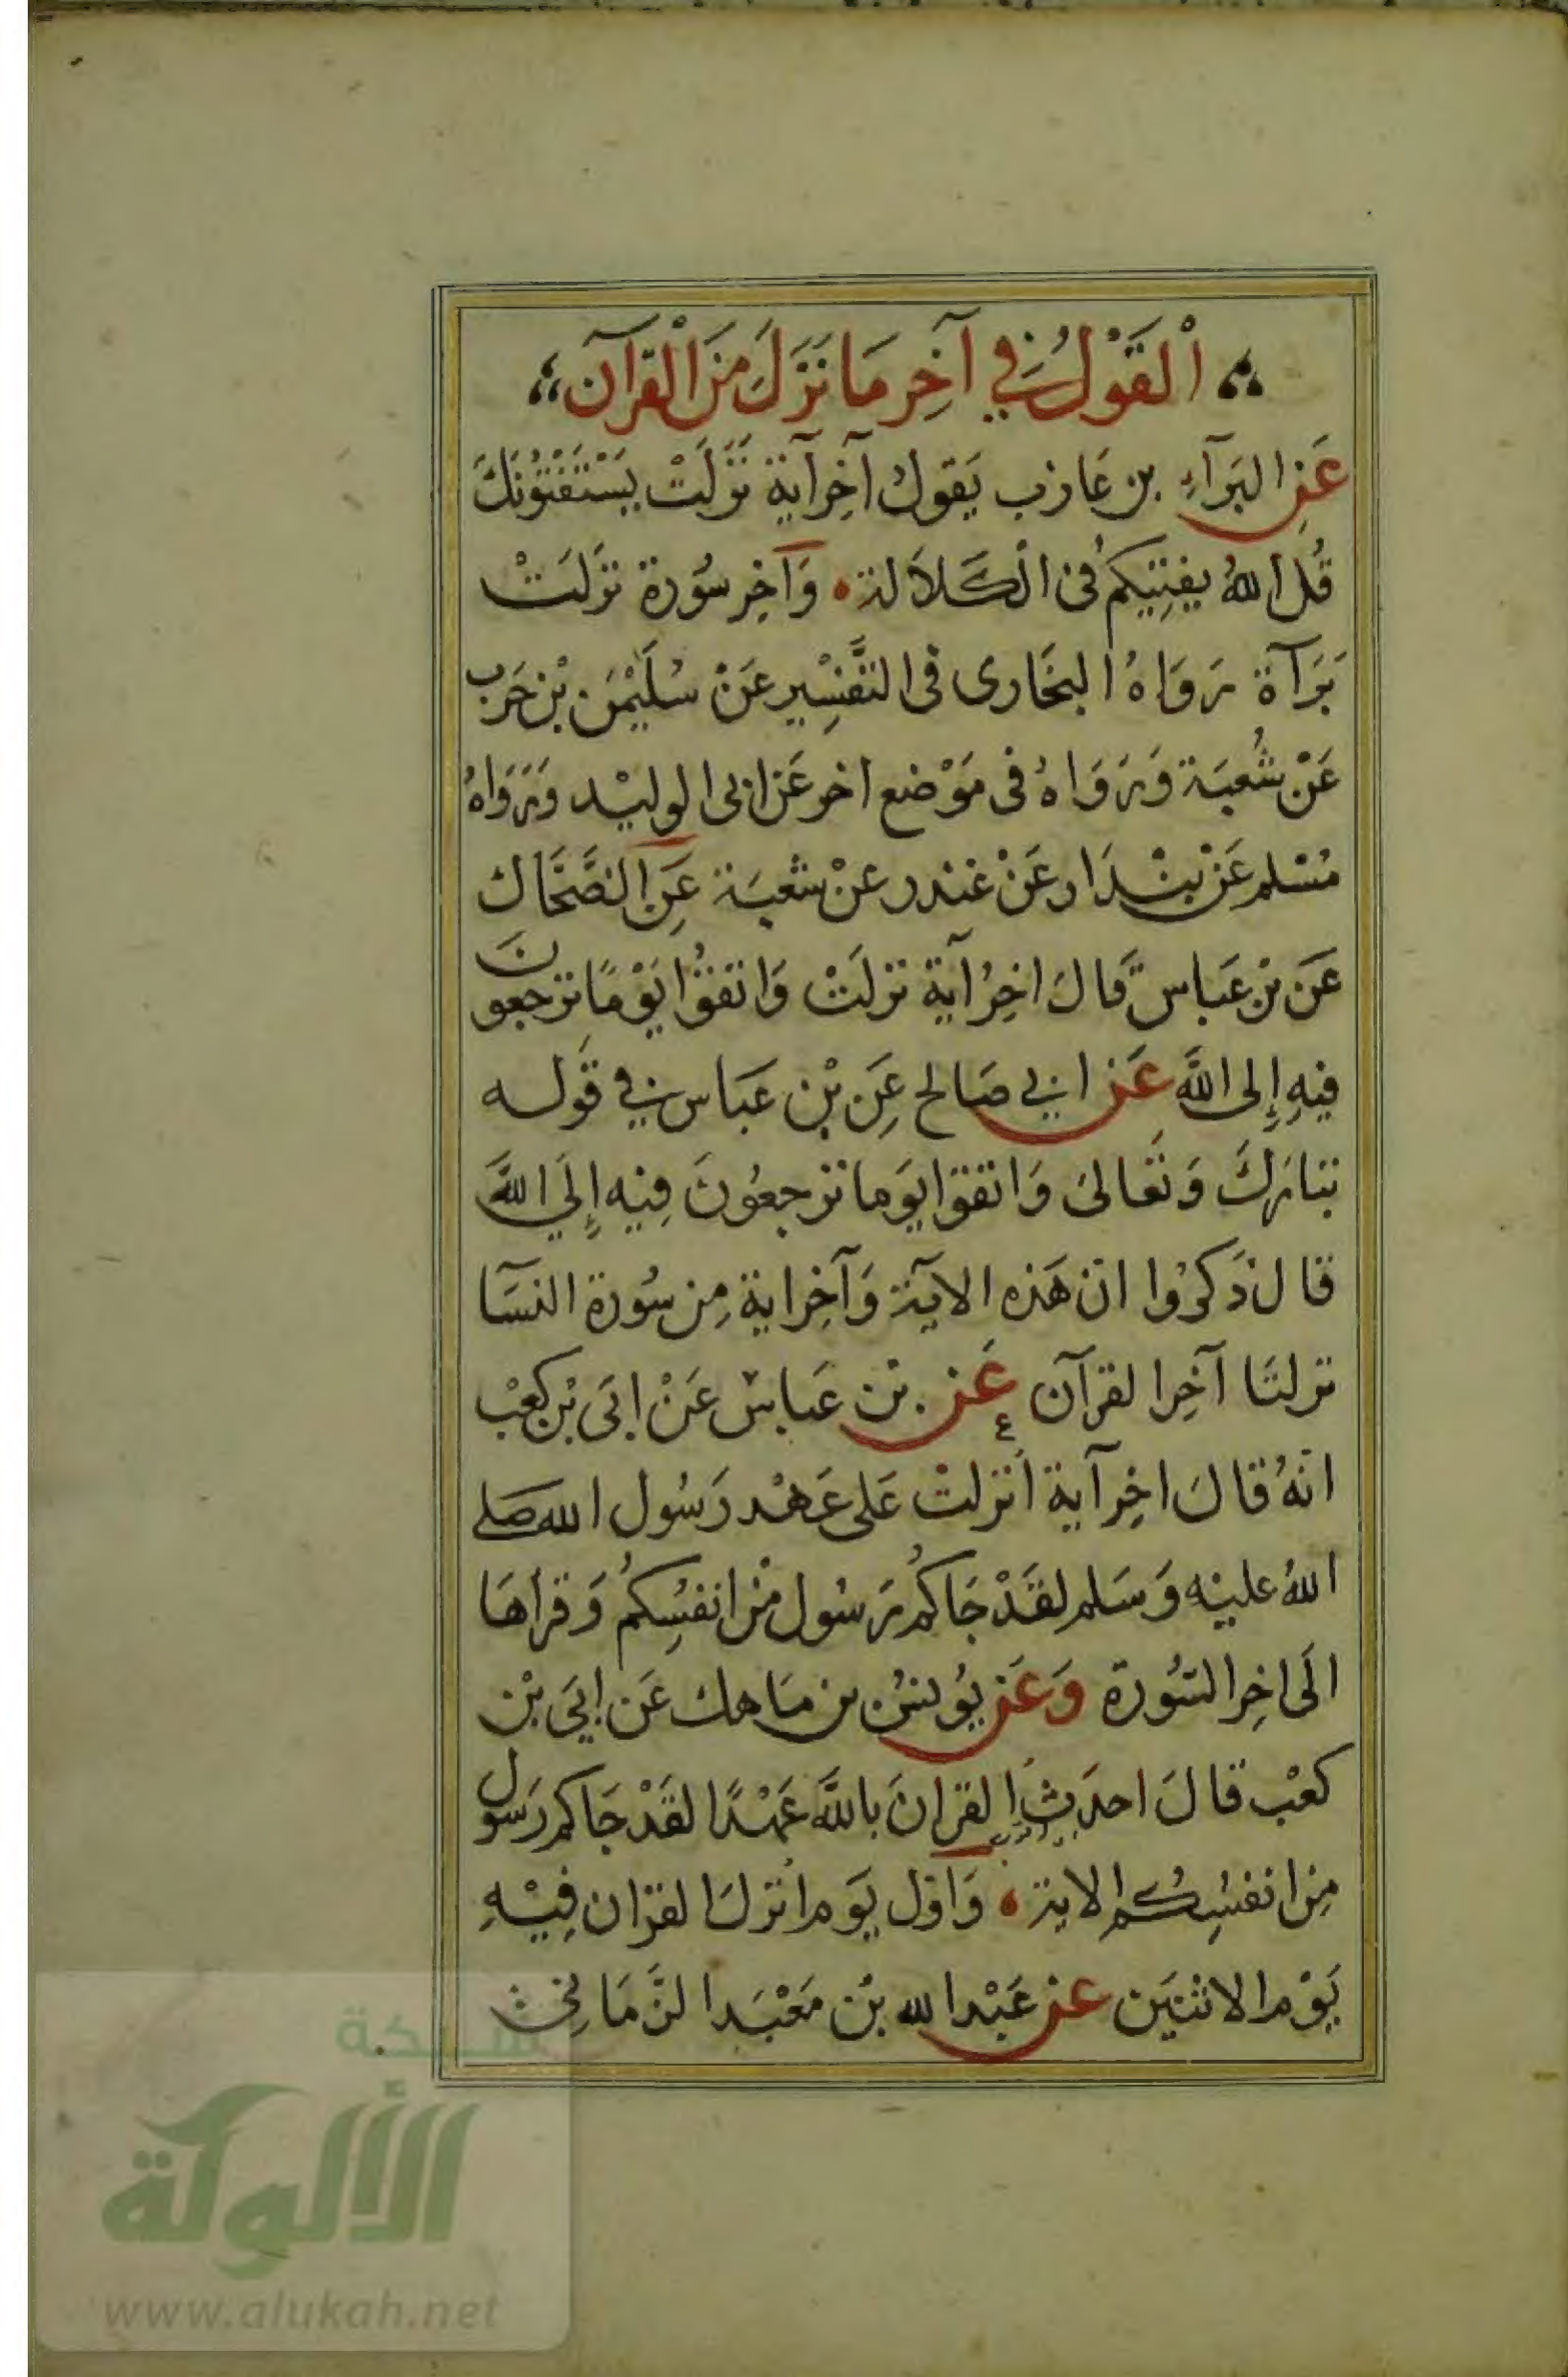 اَلْقَوْلُ فِي آخِرِ مَا نَزَلَ مِنَ الْقُرآن
عَنِ البَرَآءِ بن عَازب يَقول آخِر آية نَزَلَتْ يَسْتَفْتُونَكَ
قُل اللهُ يفتِيكم فى الْكَلاَلة وَآخِر سُورة نزلَتْ
بَرَآة رَوَاهُ البخَارى فى التَّفسِير عَنْ سُلَيْمٰن بْن حَرب
عَنْ شُعبَة وَرَوَاهُ فى مَوْضع اخر عَن ابى الوليْد وَرَوَاهُ
مُسْلم عَنْ بنْدَار عَنْ غندر عنْ شعبَة عَنِ الضَّحَّاك
عَن بْن عَباس قَالَ اخِرُ آية نزلَتْ وَاتقوُا يَوْمًا ترجعون
فيهِ إِلى اللَّه عَن ابي صَالح عَنِ بْن عَبَاس في قَوله
تبَارَكَ وَتَعَالىَ وَاتقوا يَوما ترجعُونَ فِيْه إِلَي اللَّه
قال ذَكرُوا انّ هَذه الآية وَآخِر اية مِن سُورة النسَآ
نزلتَا آخِر القرآن عَن بْن عَباس عَنْ ابَى بْن كَعْب
انهُ قالَ اخِر آية اُنزلتْ عَلى عَهْد رَسُول الله صَلى
اللهُ عليْه وَسَلم لقَدْ جَاكُم رَسُول مْن انفسُكُم وَقرأهَا
الَى اخِر السُورة وَعَن يوُسُف بن مَاهك عَن ابَي بْن
كعْب قالَ احدَث القرانَ باللَّه عَهْدًا لقَدْ جَاكم رَسول
مِن انفسُكم الاية وَاوّل يَوم اُنزلَ القرَان فِيْهِ
يَوْم الاثنيَن عن عَبْد الله بْن مَعْبَد الزّمَانِى
شبكة
الألوكة
www.alukah.net